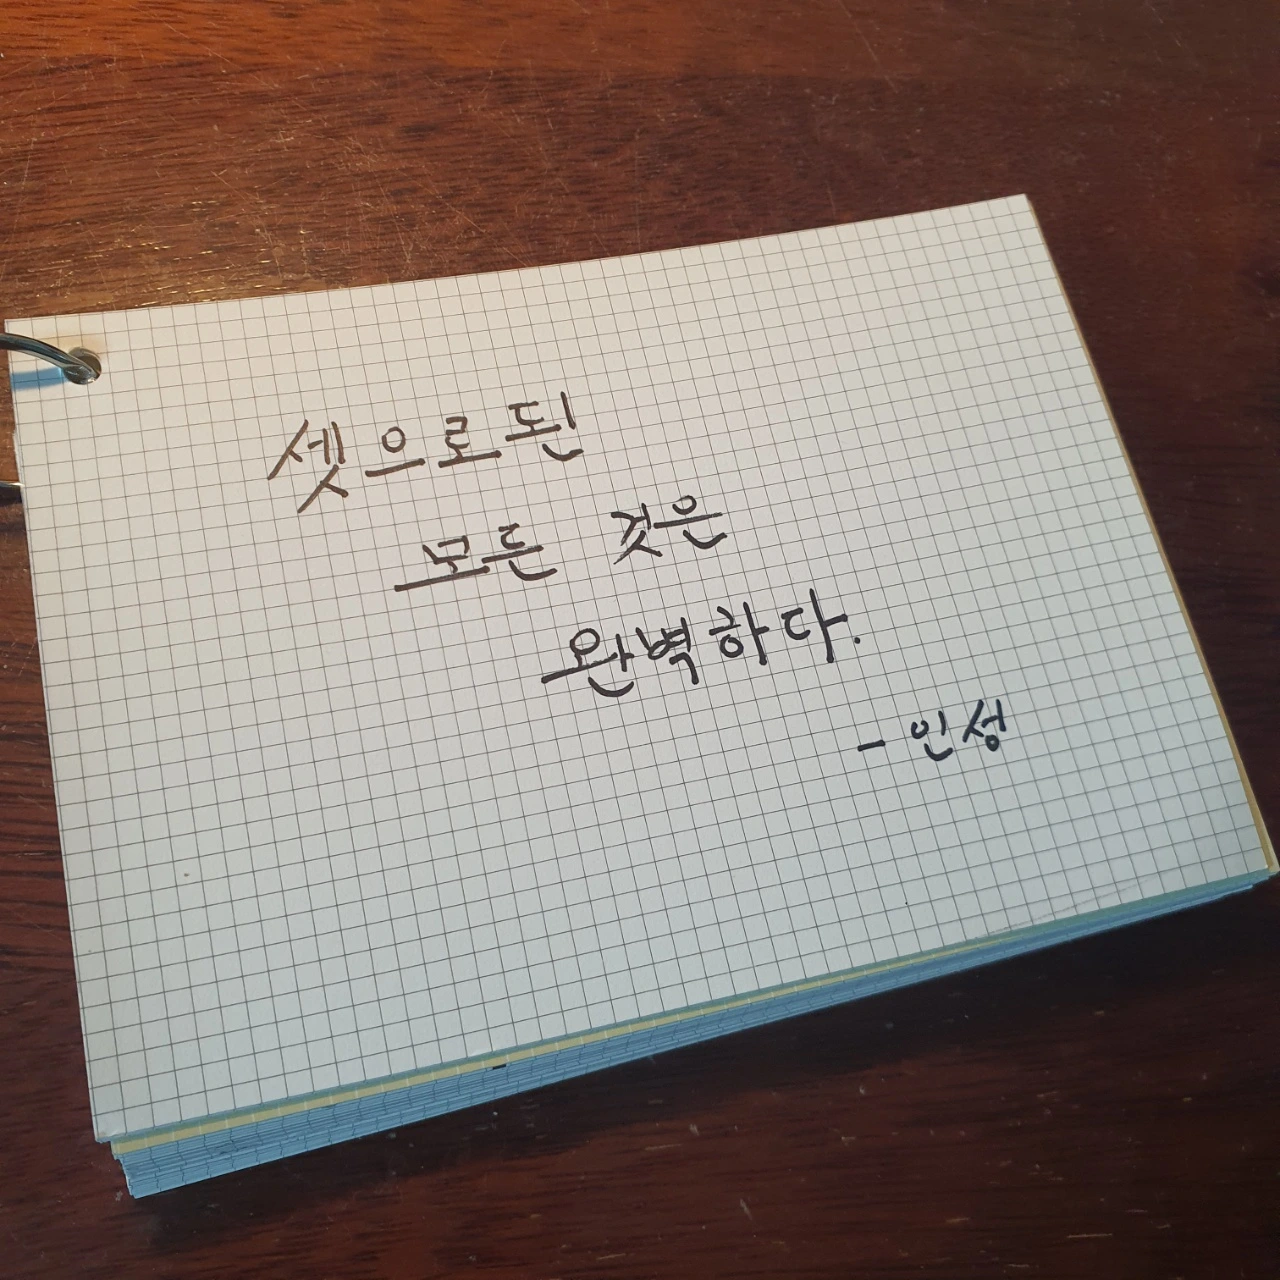 셋으로된
모든 것은
완벽하다.
- 인성